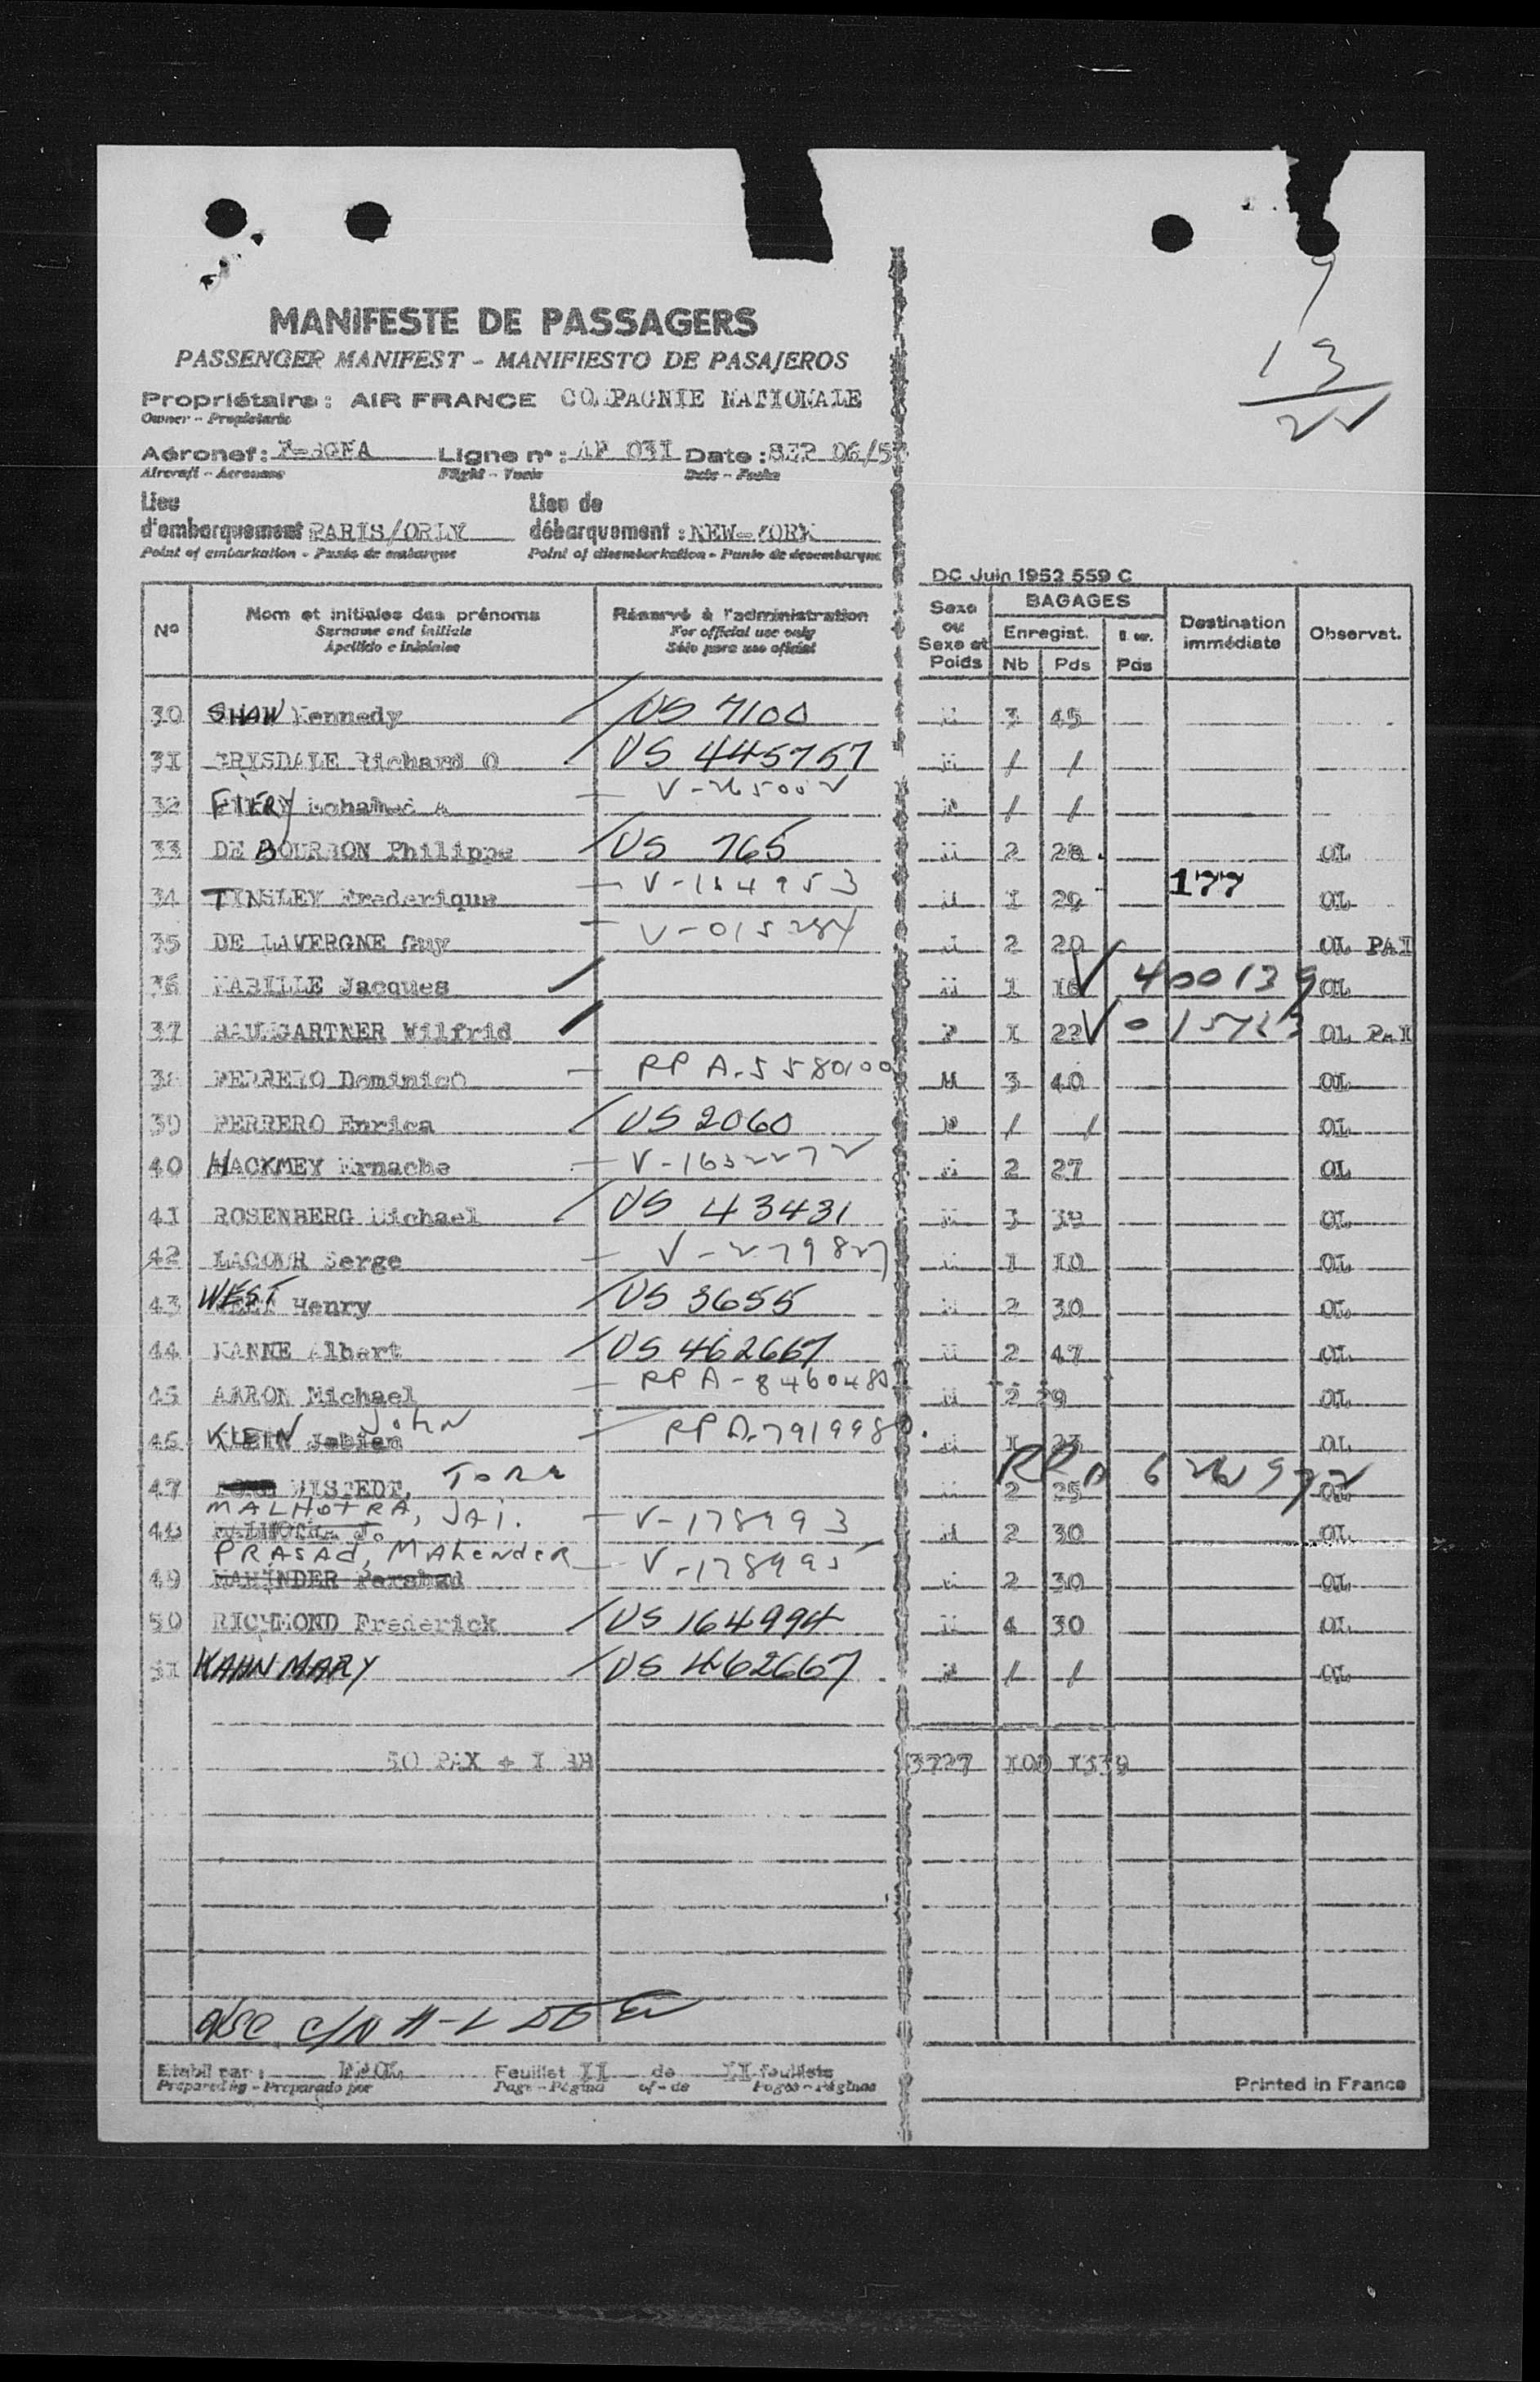 9
13
22
MANIFESTE DE PASSAGERS
PASSENGER MANIFEST - MANIFIESTO DE PASAJEROS
Propriétaire : AIR FRANCE COMPAGNIE NATIONALE
Owner - Propietario
Aéronef : Ligne n° : AF 031 Date : SEP 06/5
Aircraft - Aeronave Flight - Date - Fecha
Lieu d'embarquement PARIS/ORLY Lieu de débarquement : NEW-YORK
Point of embarkation - Punto de embarque Point of disembarkation - Punto de desembarque
DC Juin 1952 559 C
N° Nom et initiales des prénoms Réservé à l'administration Sexe ou Sexe et Poids BAGAGES Destination immédiate Observat.
Surname and initials For official use only Enregist.
Apellido e iniciales Sólo para uso oficial Nb Pds Pds
30 SHAW Kennedy US 7100 M 3 45
31 Richard O US 445757 M / /
32 Mohamed A V-265002 / /
33 DE BOURBON Philippe US 765 M 2 28 OL
34 TINSLEY Frederique V-184953 M I 29 177 OL
35 DE LAVERGNE Guy V-015284 M 2 20 OL PAI
36 MABILLE Jacques M 1 16 V 400139 OL
37 BAUMGARTNER Wilfrid I 22 V-0 OL PAI
38 FERRERO Dominico RP A-5580100 M 3 40 OL
39 FERRERO Enrica US 2060 / / OL
40 HACKMEY V-1632272 M 2 27 OL
41 ROSENBERG Michael US 43431 M 3 OL
42 LACOUR Serge V-279827 I 10 OL
43 WEST Henry US 3655 M 2 30 OL
44 KANNE Albert US 462667 M 2 47 OL
45 AARON Michael RP A-8460480 M 2 29 OL
46 KLEIN John RP A-7919980 M I 23 OL
47 TORE M 2 25 RP A OL
MALHOTRA, JAI.
48 V-178993 M 2 30 OL
PRASAD, MAHENDER
49 MAHINDER V-178995 2 30 OL
50 RICHMOND Frederick US 164994 M 4 30 OL
51 KAHN MARY US 462667 / / OL
50 PAX + I BB 3727 100 1339
Etabli par : Feuillet II de II feuillets
Prepared by - Preparado por Page - Página of - de Pages - Páginas
Printed in France